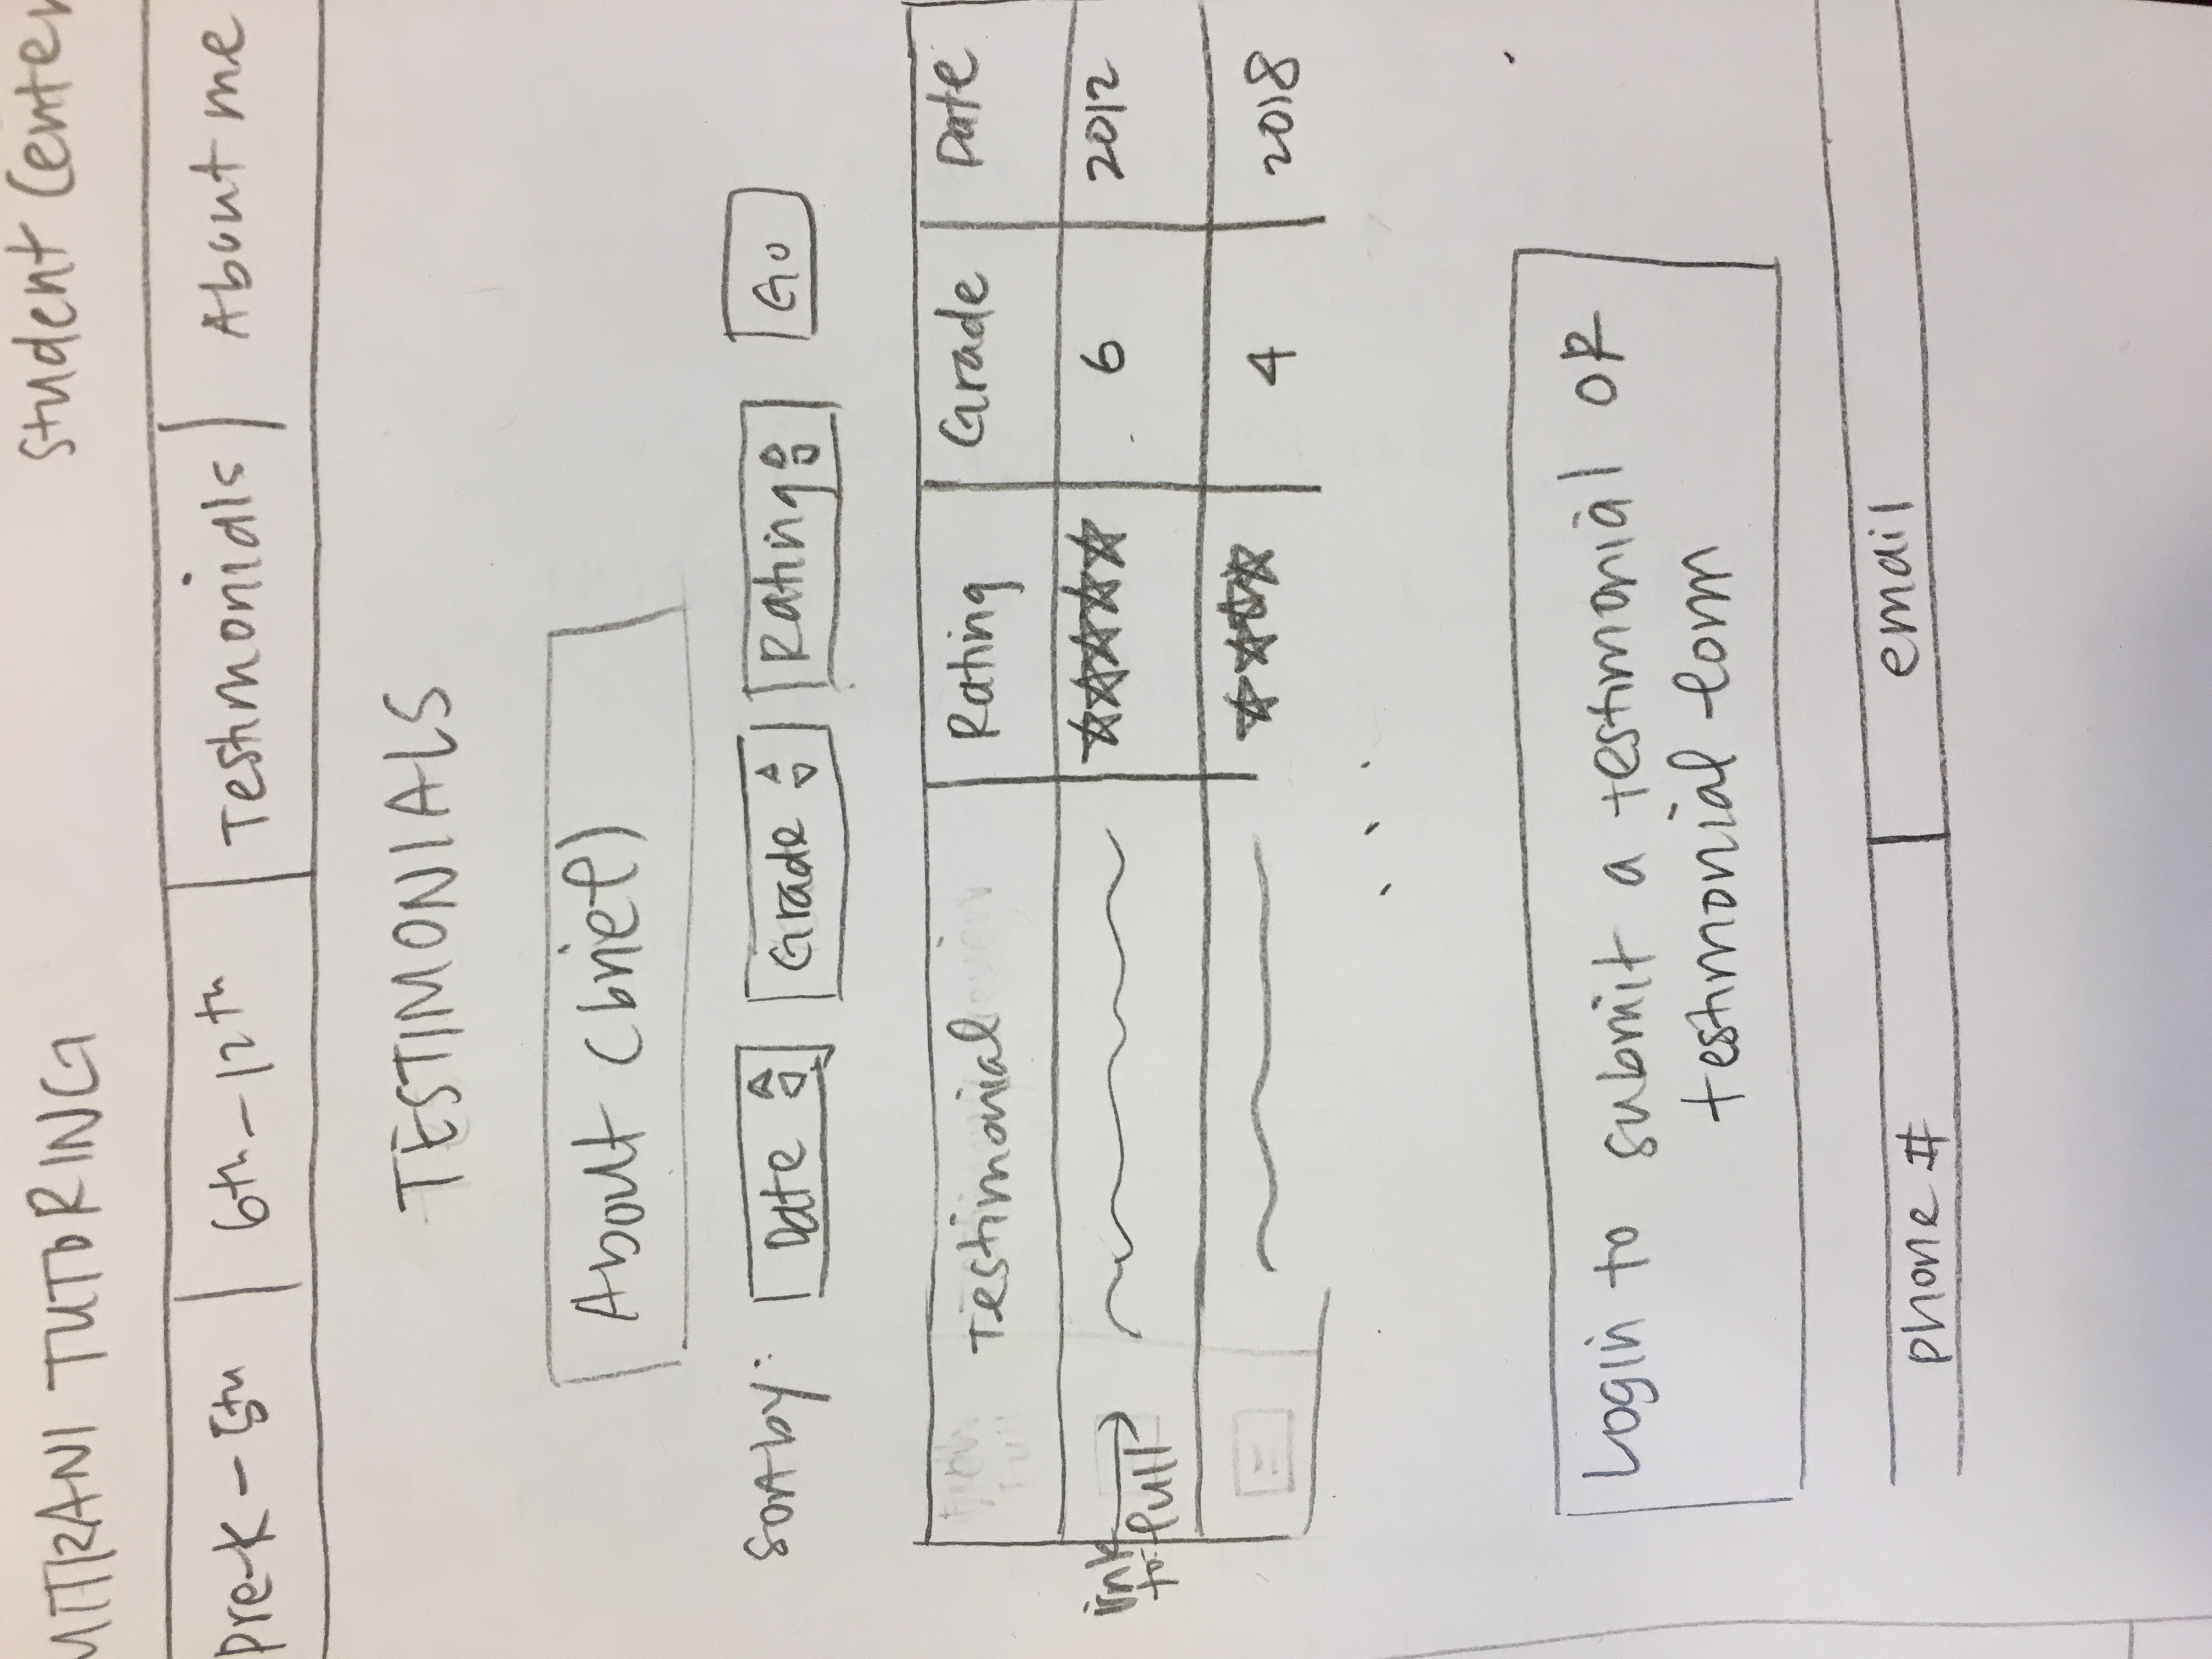 MITRANI TUTORING Student Center
Pre-K - 5th 6th - 12th Testimonials About me
TESTIMONIALS
About (brief)
Sort by: Date Grade Rating Go
Testimonial Rating Grade Date
link
to full
6 2012
4 2018
...
Login to submit a testimonial OR
testimonial form
phone # email